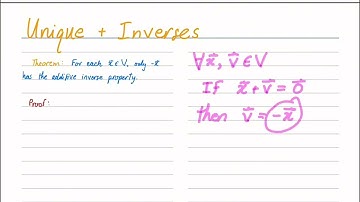 Unique + Inverses
Theorem: For each x⃗ ∈ V, only -x⃗
has the additive inverse property.
Proof:
∀x⃗, v⃗ ∈ V
If x⃗ + v⃗ = 0⃗
then v⃗ = -x⃗